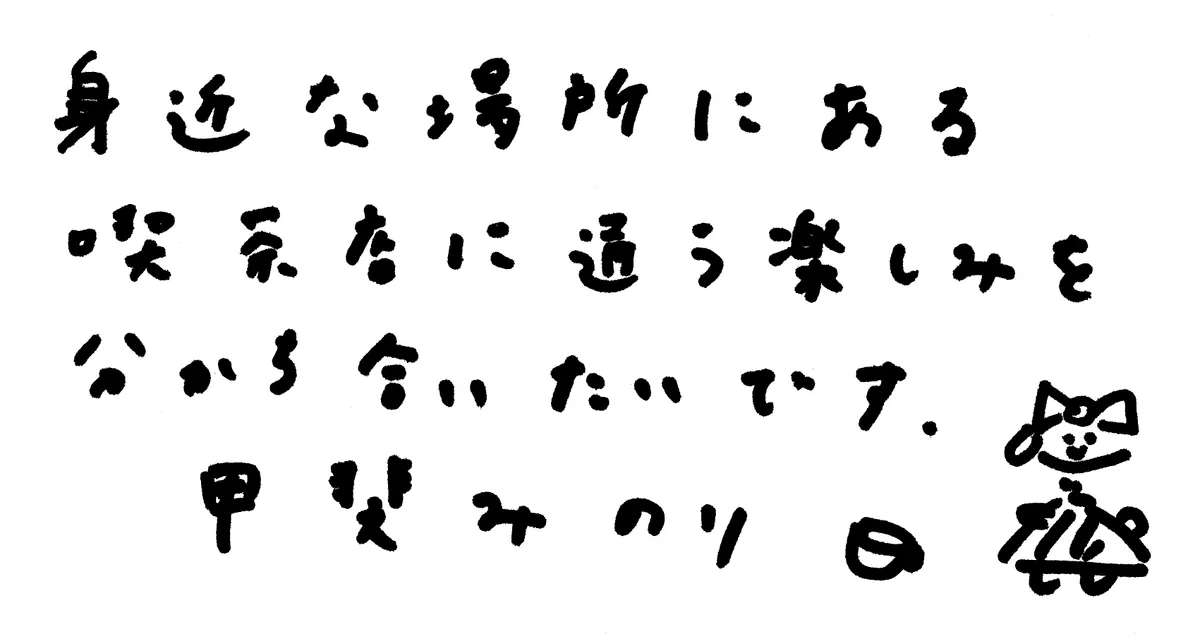 身近な場所にある
喫茶店に通う楽しみを
分かち合いたいです.
甲斐みのり